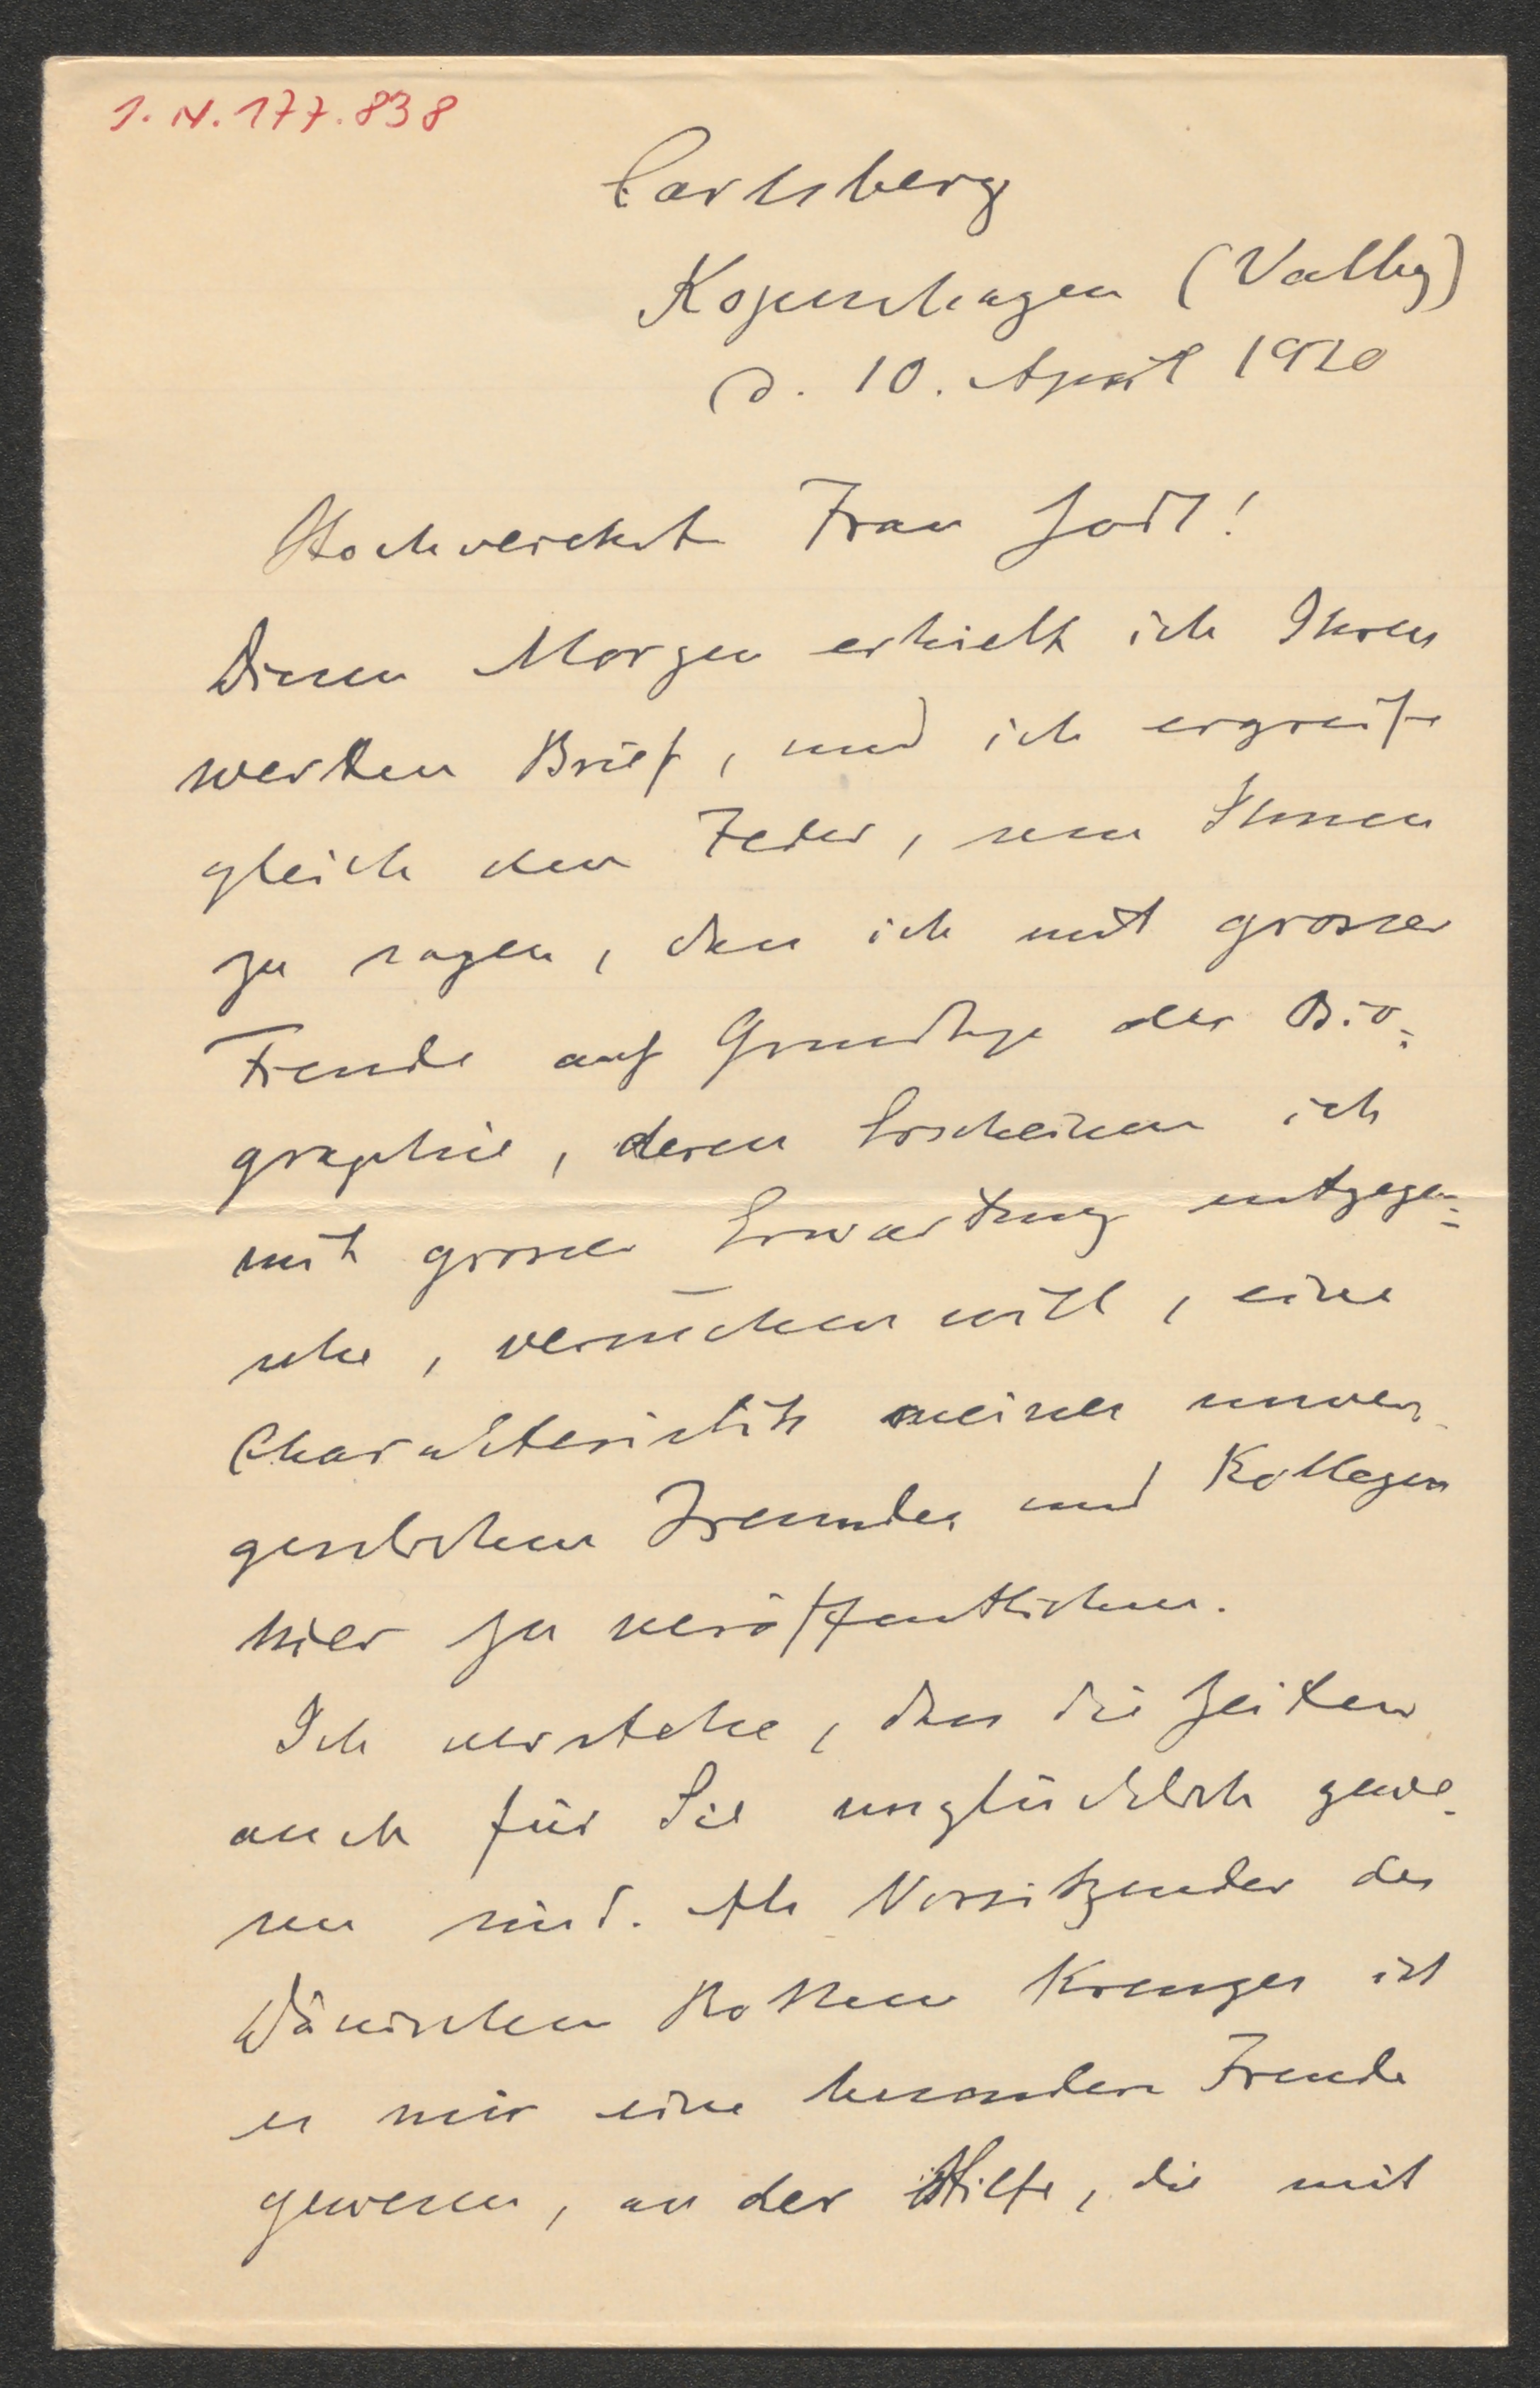 I. N. 177.838
Carlsberg
Kopenhagen (Valby)
d. 10. April 1920
Hochverehrte Frau Jodl!
Diesen Morgen erhielt ich Ihren
werten Brief, und ich ergreife
gleich den Feder, um Ihnen
zu sagen, dass ich mit grosser
Freude auf Grundlage der Bio=
graphie, deren Erscheinen ich
mit grosser Erwartung entgegen=
sehe, versuchen will, eine
Charakteristik meines unver-
gesslichen Freundes und Kollegen
hier zu veröffentlichen.
Ich verstehe, dass die Zeiten
auch für Sie unglücklich gewe-
sen sind. Als Vorsitzender des
Dänischen Rothen Kreuzes ist
es mir eine besondere Freude
gewesen, an der Hilfe, die mit